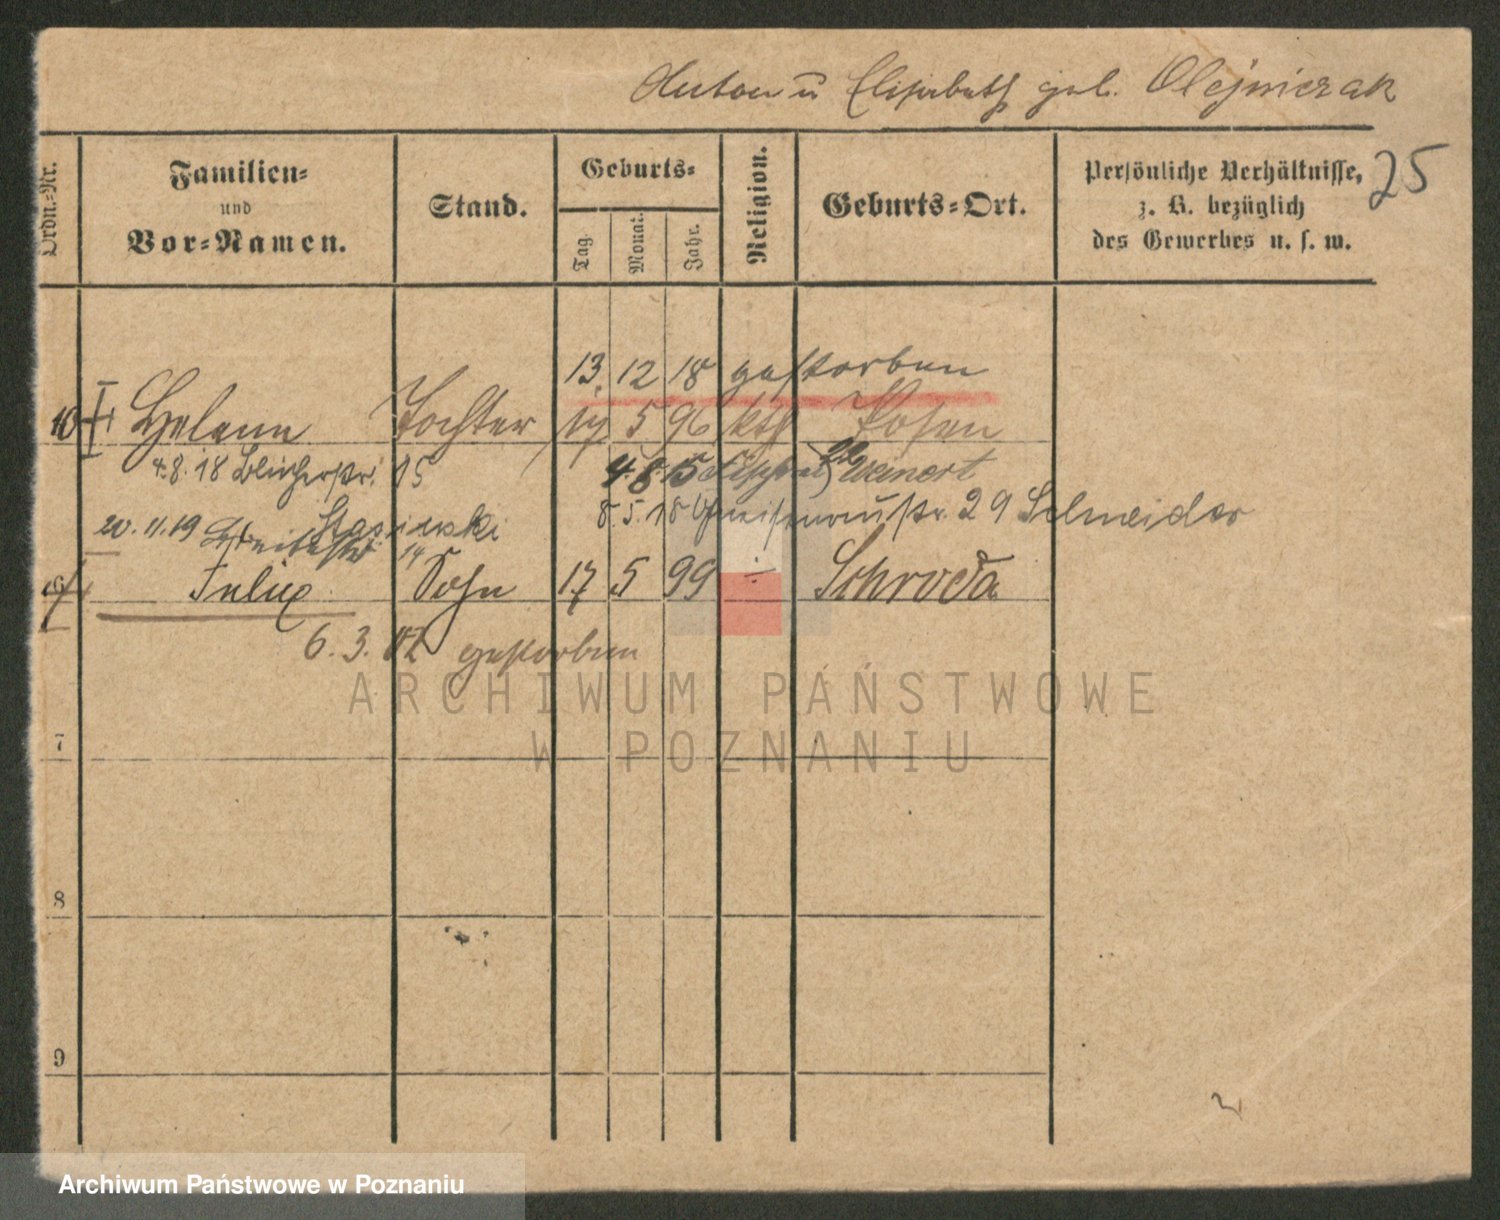 Anton u Elisabeth geb. Olejniczak
Ordn.-Nr.
Familien-
und
Vor-Namen.
Stand.
Geburts-
Tag.
Monat.
Jahr.
Religion.
Geburts-Ort.
Persönliche Verhältnisse,
z. B. bezüglich
des Gewerbes u. s. w.
25
13. 12 18 gestorben
Helene Tochter 5 96 kth Posen
4.8.18 Blücherstr. 15
4.8.15 Weinert
8.5.18 Gneisenaustr. 29 Schneider
20.11.19 Stasiewski
14
Felix Sohn 17 5 99 Schroda
6.3.02 gestorben
7
8
9
ARCHIWUM PAŃSTWOWE
W POZNANIU
Archiwum Państwowe w Poznaniu